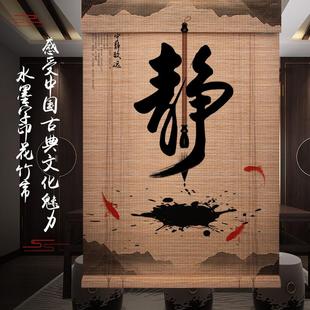 感受中国古典文化魅力
水墨印花竹帘
宁静致远
静